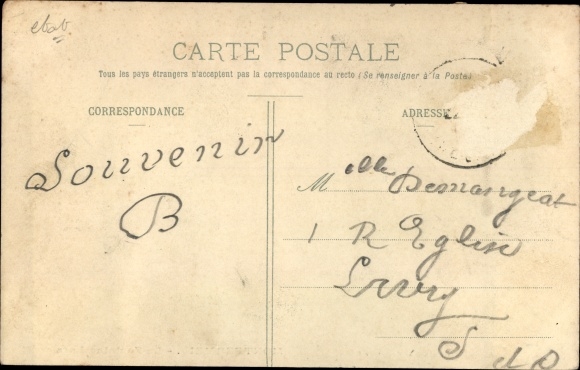 CARTE POSTALE
Tous les pays étrangers n'acceptent pas la correspondance au recto (Se renseigner à la Poste)
CORRESPONDANCE
ADRESSE
Souvenir
B
Melle Demangeat
1 R Eglise
S et O